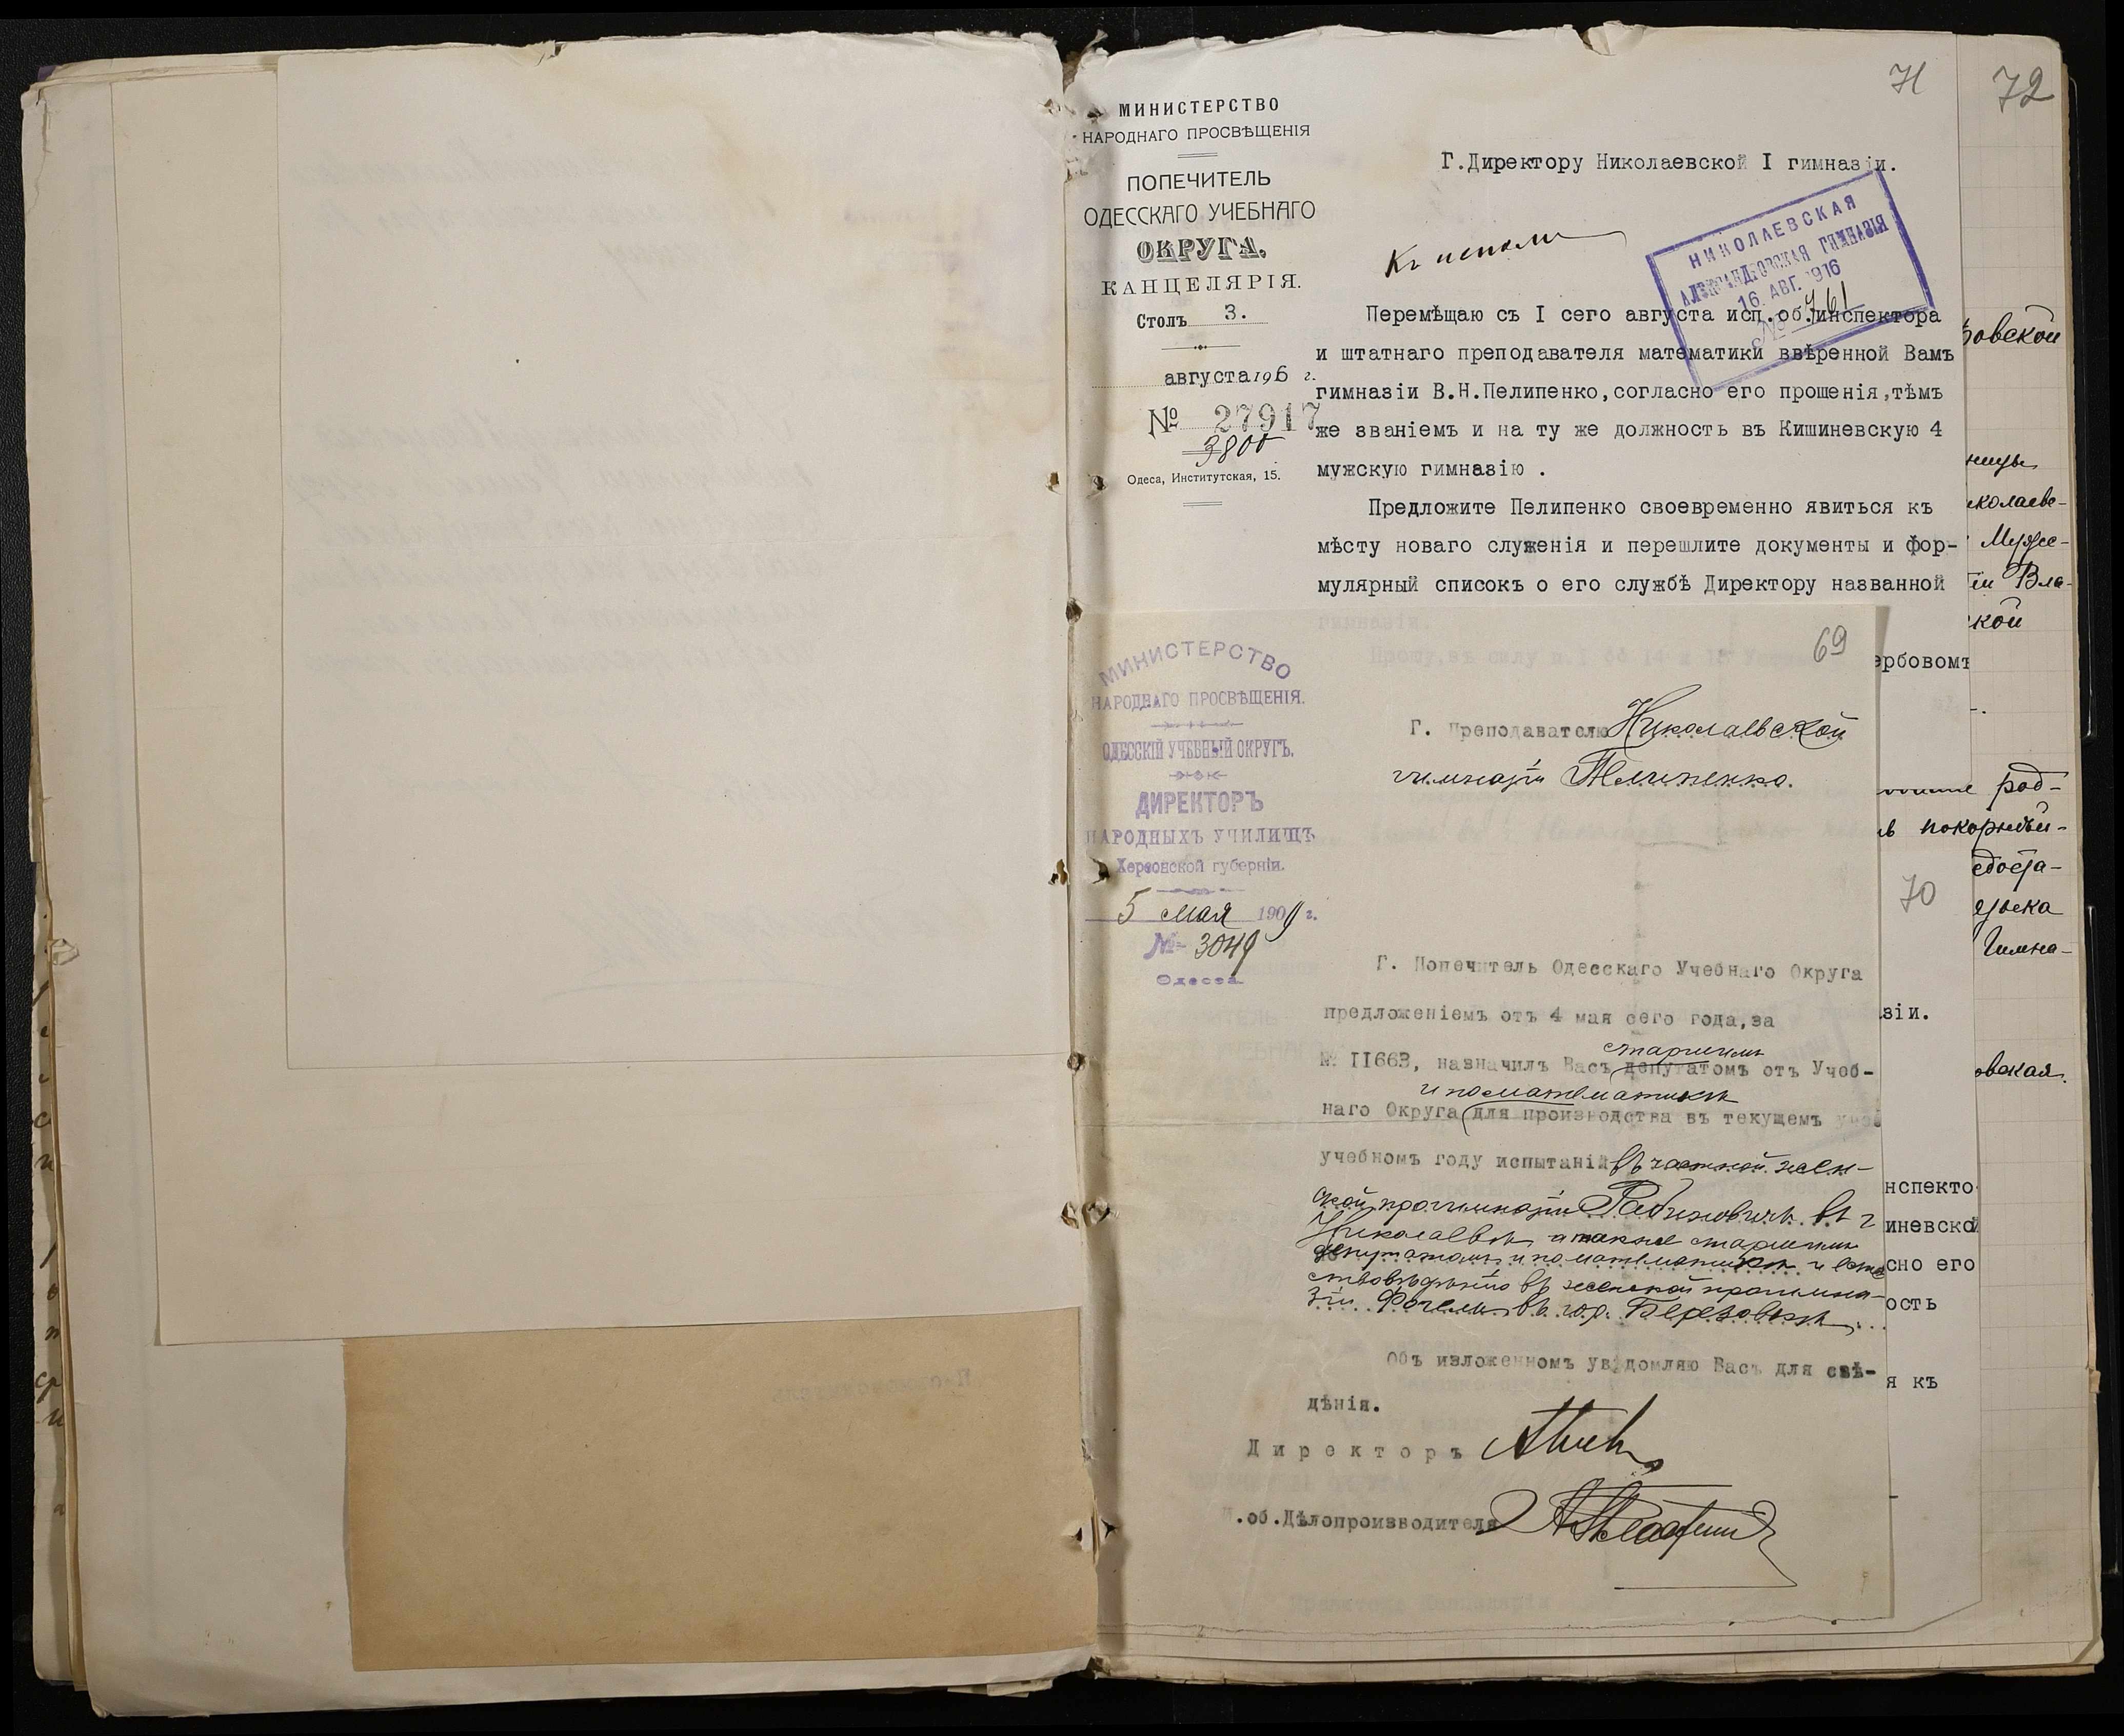 71
72
МИНИСТЕРСТВО
НАРОДНАГО ПРОСВѢЩЕНІЯ
ПОПЕЧИТЕЛЬ
ОДЕССКАГО УЧЕБНАГО
ОКРУГА.
КАНЦЕЛЯРІЯ.
Столъ 3.
августа 1916 г.
№ 27917
3800
Одеса, Институтская, 15.
Г.Директору Николаевской I гимназіи.
Къ исполн
НИКОЛАЕВСКАЯ
АЛЕКСАНДРОВСКАЯ ГИМНАЗІЯ
16. АВГ. 1916
№ 761
Перемѣщаю съ I сего августа исп.об.инспектора
и штатнаго преподавателя математики ввѣренной Вамъ
гимназіи В.Н.Пелипенко,согласно его прошенія,тѣмъ
же званіемъ и на ту же должность въ Кишиневскую 4
мужскую гимназію .
Предложите Пелипенко своевременно явиться къ
мѣсту новаго служенія и перешлите документы и фор-
мулярный списокъ о его службѣ Директору названной
гимназіи.
ербовомъ
69
МИНИСТЕРСТВО
НАРОДНАГО ПРОСВѢЩЕНІЯ.
ОДЕССКІЙ УЧЕБНЫЙ ОКРУГЪ.
ДИРЕКТОРЪ
НАРОДНЫХЪ УЧИЛИЩЪ
Херсонской губерніи.
5 мая 1909 г.
№ 3049
Одесса
Г. Преподавателю Николаевской
гимназіи Пелипенко.
Г. Попечитель Одесскаго Учебнаго Округа
предложеніемъ отъ 4 мая сего года,за
старшимъ
№ II663, назначилъ Васъ депутатомъ отъ Учеб-
и по математикѣ
наго Округа для производства въ текущемъ
учебномъ году испытаній въ частной жен-
ской прогимназіи Рабиновичъ въ г
Николаевѣ а также старшимъ
депутатомъ и по математикѣ и есте
ствовѣдѣнію въ женской прогимна-
зіи Фогель въ гор. Березовкѣ
Объ изложенномъ увѣдомляю Васъ для свѣ-
дѣнія.
Директоръ
И.об.Дѣлопроизводителя
70
зіи.
нспекто
иневской
сно его
ость
я къ
овской
ницы
иколаевс-
Мужс-
іи Вла-
ской
род-
въ покорнѣй-
Гимна-
овская.